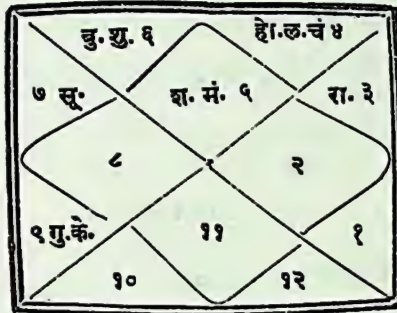 बु. शु. ६ हो.ल.चं ४
७ सू. श. मं. ५ रा. ३
८ २
९ गु.के. ११ १
१० १२